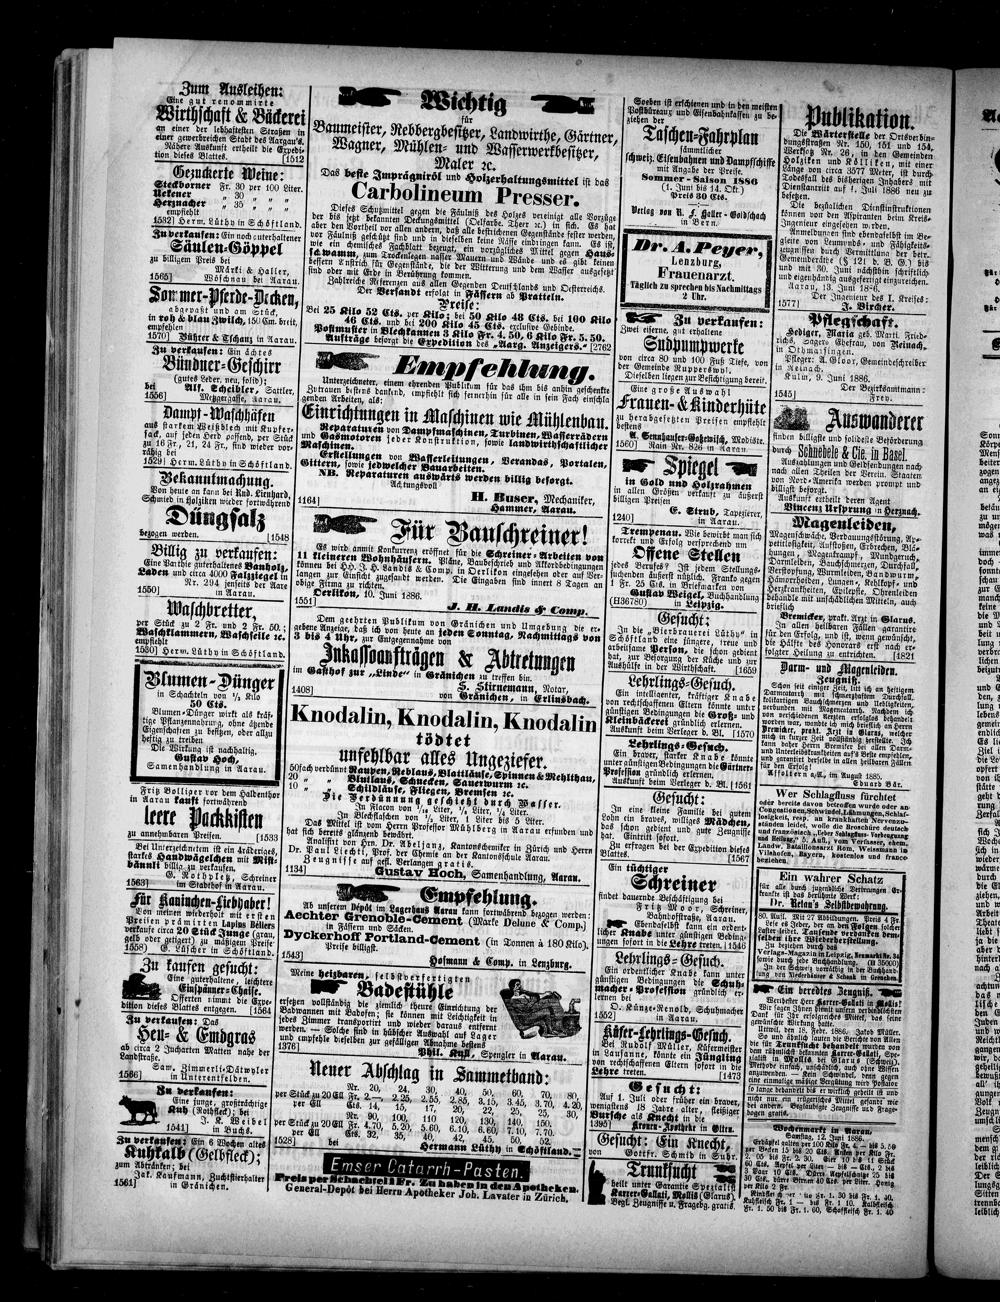 Zum Ausleihen:
Eine gut renommirte
Wirthschaft & Bäckerei
an einer der lebhaftesten Straßen in
einer gewerbreichen Stadt des Aargau's.
Nähere Auskunft ertheilt die Expedi-
tion dieses Blattes. [1512
Gezuckerte Weine:
Steckborner Fr. 30 per 100 Liter.
Uekener " 30 " " "
Herznacher " 35 " " "
empfiehlt
1532] Herm. Lüthy in Schöftland.
Zu verkaufen: Ein noch guterhaltener
Säulen-Göppel
zu billigem Preis bei
Märki & Haller,
1565] Möschnau bei Aarau.
Sommer-Pferde-Decken,
abgepaßt und am Stück,
in roh & blau Zwilch, 150 Cm. breit,
empfehlen
1570] Bührer & Tschanz in Aarau.
Zu verkaufen: Ein ächtes
Bündner-Geschirr
(gutes Leder, neu, solid);
bei Alf. Scheibler, Sattler,
1556] Metzgergasse, Aarau.
Dampf-Waschhäfen
aus starkem Weißblech mit Kupfer-
fack, auf jeden Herd passend, per Stück
zu 16 Fr., 21, 24, sind wieder vor-
räthig bei
1529] Herm. Lüthy in Schöftland.
Bekanntmachung.
Von heute an kann bei Rud. Lienhard,
Schmied in Holziken wieder fortwährend
Düngsalz
bezogen werden. [1548
Billig zu verkaufen:
Eine Parthie guterhaltenes Bauholz,
Laden und circa 4000 Falzziegel in
Nr. 294 jenseits der Aare
1550] in Aarau.
Waschbretter,
per Stück zu 2 Fr. und 2 Fr. 50.;
Waschklammern, Waschseile ꝛc.
empfiehlt
1530] Herm. Lüthy in Schöftland.
Blumen-Dünger
in Schachteln von ½ Kilo
50 Cts.
Blumen-Dünger wirkt als kräf-
tige Pflanzennahrung, ohne ätzende
Eigenschaften zu besitzen, oder allzu
heftig zu treiben.
Die Wirkung ist nachhaltig.
Gustav Hoch,
Samenhandlung in Aarau.
Fritz Bolliger vor dem Haldenthor
in Aarau kauft fortwährend
leere Packkisten
zu annehmbaren Preisen. [1533
Bei Unterzeichnetem ist ein 4räderiges,
starkes Handwägelchen mit Mist-
bännli billig zu verkaufen.
G. Rothpletz, Schreiner
1563] im Stadthof in Aarau.
Für Kaninchen-Liebhaber!
Von meinen wiederholt mit ersten
Preisen prämirten Lapins Béliers
verkaufe circa 20 Stück Junge (grau,
gelb oder getigert) zu mäßigem Preise
1558) G. Lüscher in Schöftland.
Zu kaufen gesucht:
Eine guterhaltene, leichtere
Einspänner-Chaise.
Offerten nimmt die Expe-
dition dieses Blattes entgegen. [1564
Zu verkaufen: Das
Heu- & Emdgras
ab circa 2 Jucharten Matten nahe der
Landstraße.
Sam. Zimmerli-Dätwyler
1566] in Unterentfelden.
Zu verkaufen:
Eine junge, großträchtige
Kuh (Rothfleck); bei
J. K. Weibel
1541] in Buchs.
Zu verkaufen: Ein 6 Wochen altes
Kuhkalb (Gelbfleck);
zum Abtränken; bei
Jak. Kaufmann, Zuchtstierhalter
1561] in Gränichen.
Wichtig
für
Baumeister, Rebbergbesitzer, Landwirthe, Gärtner,
Wagner, Mühlen- und Wasserwerkbesitzer,
Maler ꝛc.
Das beste Imprägniröl und Holzerhaltungsmittel ist das
Carbolineum Presser.
Dieses Schutzmittel gegen die Fäulniß des Holzes vereinigt alle Vorzüge
der bis jetzt bekannten Deckungsmittel (Oelfarbe, Theer ꝛc.) in sich. Es hat
aber den Vortheil vor allen andern, daß alle bestrichenen Gegenstände selber total
vor Fäulniß geschützt sind und in dieselben keine Nässe eindringen kann. Es ist,
wie ein chemisches Fachblatt bezeugt, ein vorzügliches Mittel gegen Haus-
schwamm, zum Trockenlegen nasser Mauern und Wände und es gibt keinen
bessern Anstrich für Gegenstände, die der Witterung und dem Wasser ausgesetzt
sind oder mit Erde in Berührung kommen.
Zahlreiche Referenzen aus allen Gegenden Deutschlands und Oesterreichs.
Der Versandt erfolgt in Fässern ab Pratteln.
Preise:
Bei 25 Kilo 52 Cts. per Kilo; bei 50 Kilo 48 Cts. bei 100 Kilo
46 Cts. und bei 200 Kilo 45 Cts. exclusive Gebinde.
Postmuster in Blechkannen 3 Kilo Fr. 4. 50, 6 Kilo Fr. 5. 50.
Aufträge besorgt die Expedition des „Aarg. Anzeigers." [2762
Empfehlung.
Unterzeichneter, einem ehrenden Publikum für das ihm bis anhin geschenkte
Zutrauen bestens dankend, empfiehlt sich fernerhin für alle in sein Fach einschla
genden Arbeiten, als:
Einrichtungen in Maschinen wie Mühlenbau.
Reparaturen von Dampfmaschinen, Turbinen, Wasserrädern
und Gasmotoren jeder Konstruktion, sowie landwirthschaftlicher
Maschinen.
Erstellungen von Wasserleitungen, Verandas, Portalen,
Gittern, sowie jedwelcher Bauarbeiten.
NB. Reparaturen auswärts werden billig besorgt.
Achtungsvoll
H. Buser, Mechaniker,
1164] Hammer, Aarau.
Für Bauschreiner!
Es wird anmit Konkurrenz eröffnet für die Schreiner-Arbeiten von
11 kleineren Wohnhäusern. Pläne, Baubeschrieb und Akkordbedingungen
können bei Hh. J. H. Landis & Comp. in Oerlikon eingesehen oder auf Ver-
langen zur Einsicht zugesandt werden. Die Eingaben sind innert 8 Tagen an
obige Firma zu richten.
Oerlikon, 10. Juni 1886.
1551] J. H. Landis & Comp.
Dem geehrten Publikum von Gränichen und Umgebung die er-
gebene Anzeige, daß ich von heute an jeden Sonntag, Nachmittags von
3 bis 4 Uhr, zur Entgegennahme von
Inkassoaufträgen & Abtretungen
im Gasthof zur „Linde" in Gränichen zu treffen bin.
S. Stirnemann, Notar,
1408] von Gränichen, in Erlinsbach.
Knodalin, Knodalin, Knodalin
tödtet
unfehlbar alles Ungeziefer.
50fach verdünnt Raupen, Reblaus, Blattläuse, Spinnen & Mehlthau,
20 " " Blutlaus, Schnecken, Sauerwurm ꝛc.
10 " " Schildläuse, Fliegen, Bremsen ꝛc.
Die Verdünnung geschieht durch Wasser.
In Flacon von ¹/₁₀ Liter, ¼ Liter, ½ Liter.
In Blechflaschen von ½ Liter, 1 Liter bis 5 Liter.
Das Mittel ist vom Herrn Professor Mühlberg in Aarau erfunden und
hat sich bereits glänzend bewährt.
Analisirt von Hrn. Dr. Abeljanz, Kantonschemiker in Zürich und Herrn
Dr. Paul Liechti, Prof. der Chemie an der Kantonsschule Aarau.
Zeugnisse auf gefl. Verlangen gratis.
1134] Gustav Hoch, Samenhandlung, Aarau.
Empfehlung.
Ab unserem Depot im Lagerhaus Aarau kann fortwährend bezogen werden:
Aechter Grenoble-Cement (Marke Delune & Comp.)
in Fässern und Säcken.
Dyckerhoff Portland-Cement (in Tonnen à 180 Kilo).
Preise billigst.
1543] Hofmann & Comp. in Lenzburg.
Meine heizbaren, selbstverfertigten
Badestühle
ersetzen vollständig die ziemlich theure Einrichtung der
Badwannen mit Badofen; sie können mit Leichtigkeit in
jedes Zimmer transportirt und wieder daraus entfernt
werden. — Solche sind in hübscher Auswahl auf Lager
und empfehle dieselben zur gefälligen Abnahme bestens
1376] Phil. Kull, Spengler in Aarau.
Neuer Abschlag in Sammetband:
Nr. 20, 24, 30, 40, 50, 60, 70, 80,
per Stück zu 20 Ell Fr. 2.—, 2.25, 2.55, 2.85, 3.15, 3.45, 3.70, 4.20,
per Ell Cts. 14, 15, 17, 20, 22, 25, 25, 30,
Nr. 90, 100, 110, 120, 130, 140, 150,
per Stück zu 20 Ell Fr. 4.70, 5.20, 5.60, 6.10, 6.60, 7.10, 7.70,
per Ell Cts. 32, 35, 40, 42, 45, 50, 52
1528] bei Hermann Lüthy in Schöftland.
Emser Catarrh-Pasten.
Preis per Schachtel 1 Fr. Zu haben in den Apotheken.
General-Depôt bei Herrn Apotheker Joh. Lavater in Zürich.
Soeben ist erschienen und in den meisten
Postbüreaux und Eisenbahnkassen zu be-
ziehen der
Taschen-Fahrplan
sämmtlicher
schweiz. Eisenbahnen und Dampfschiffe
mit Angabe der Preise.
Sommer-Saison 1886
(1. Juni bis 14. Okt.)
Preis 30 Cts.
Verlag von R. F. Haller-Goldschach
in Bern.
Dr. A. Peyer,
Lenzburg,
Frauenarzt.
Täglich zu sprechen bis Nachmittags
2 Uhr.
Zu verkaufen:
Zwei eiserne, gut erhaltene
Sudpumpwerke
von circa 80 und 100 Fuß Tiefe, von
der Gemeinde Rupperswyl.
Dieselben liegen zur Besichtigung bereit.
Eine große Auswahl
Frauen- & Kinderhüte
zu herabgesetzten Preisen empfiehlt
bestens
A. Sennhauser-Gonzewisch, Modiste.
1560] Rain Nr. 826 in Aarau.
Spiegel
in Gold und Holzrahmen
in allen Größen verkauft zu äußerst
billigen Preisen
E. Strub, Tapezierer,
1240] in Aarau.
Trempenau. Wie bewirbt man sich
korrekt und Erfolg versprechend um
Offene Stellen
jedes Berufes? Ist jedem Stellung-
suchenden äußerst nützlich. Franko gegen
1 Fr. 25 Cts. in Briefmarken von
Gustav Weigel, Buchhandlung
(H36780) in Leipzig.
Gesucht:
In die „Bierbrauerei Lüthy" in
Schöftland eine jüngere, treue und
arbeitsame Person, die schon gedient
hat, zur Besorgung der Küche und zur
Aushülfe in der Wirthschaft. [1659
Lehrlings-Gesuch.
Ein intelligenter, kräftiger Knabe
von rechtschaffenen Eltern könnte unter
günstigen Bedingungen die Groß- und
Kleinbäckerei gründlich erlernen.
Auskunft beim Verleger d. Bl. [1570
Lehrlings-Gesuch.
Ein braver, starker Knabe könnte
unter günstigen Bedingungen die Gärtner-
Profession gründlich erlernen.
Auskunft beim Verleger d. Bl. [1561
Gesucht:
In eine kleine Familie bei gutem
Lohn ein braves, williges Mädchen,
das schon gedient und gute Zeugnisse
hat. Eintritt sofort.
Zu erfragen bei der Expedition dieses
Blattes. [1567
Ein tüchtiger
Schreiner
findet dauernde Beschäftigung bei
Fritz Moor, Schreiner,
Bahnhofstraße, Aarau.
Ebendaselbst kann ein ordent-
licher Knabe unter günstigen Bedin-
gungen sofort in die Lehre treten. [1546
Lehrlings-Gesuch.
Ein ordentlicher Knabe kann unter
günstigen Bedingungen die Schuh-
macher-Profession gründlich er-
lernen bei
D. Künze-Renold, Schuhmacher
1552] in Aarau.
Küfer-Lehrlings-Gesuch.
Bei Rudolf Müller, Küfermeister
in Lausanne, könnte ein Jüngling
von rechtschaffenen Eltern sofort in die
Lehre treten. [1473
Gesucht:
Auf 1. Juli oder früher ein braver,
wenigstens 18 Jahre alter, fleißiger
Bursche als Knecht in die
1395] Kreuz-Apotheke in Olten.
Gesucht: Ein Knecht,
von
Gottfr. Schmid in Suhr.
Trunksucht
heilt unter Garantie Spezialist
Karrer-Gallati, Mollis (Glarus).
Begl. Zeugnisse u. Fragebg. gratis.
Publikation.
Die Wärterstelle der Ortsverbin-
dungsstraßen Nr. 150, 151 und 154,
Werksatz Nr. 26, in den Gemeinden
Holziken und Kölliken, mit einer
Länge von circa 3577 Meter, ist durch
Todesfall des bisherigen Inhabers mit
Dienstantritt auf 1. Juli 1886 neu zu
besetzen.
Die bezüglichen Dienstinstruktionen
können von den Aspiranten beim Kreis-
Ingenieur eingesehen werden.
Anmeldungen sind denselben im Be-
gleite von Leumunds- und Fähigkeits-
zeugnissen durch Vermittlung der betr.
Gemeinderäthe (§ 121 d. B. G.) bis
und mit 30. Juni nächsthin schriftlich
und eigenhändig ausgefertigt einzureichen.
Aarau, 13. Juni 1886.
Der Ingenieur des I. Kreises:
1577] J. Bircher.
Pflegschaft.
Hediger, Maria geb. Marti, Fried-
richs, Sagers Frau, von Reinach, in
Othmarsingen.
Pfleger: A. Gloor, Gemeindeschreiber
in Reinach.
Kulm, 9. Juni 1886.
Der Bezirksamtmann:
1545] Frey.
Auswanderer
finden billigste und solideste Beförderung
durch Schnebele & Cie. in Basel.
Auszahlungen und Geldsendungen nach
nach allen Theilen der Verein. Staaten
von Nord-Amerika werden prompt und
billigst besorgt.
Auskunft ertheilt deren Agent
Vincenz Ursprung in Herznach.
Magenleiden,
Magenschwäche, Verdauungsstörung, Ap-
petitlosigkeit, Aufstoßen, Erbrechen, Blä-
hungen, Magenkrampf, Mundgeruch,
Darmleiden, Bauchschmerzen, Durchfall,
Verstopfung, Wurmleiden, Bandwurm,
Hämorrhoiden, Lungen-, Kehlkopf- und
Herzkrankheiten, Epilepsie, Ohrenleiden
behandle mit unschädlichen Mitteln, auch
brieflich
Bremicker, prakt. Arzt in Glarus.
In allen heilbaren Fällen garantire
für den Erfolg, und ist, wenn gewünscht,
die Hälfte des Honorars erst nach er-
folgter Heilung zu entrichten. [1821
Darm- und Magenleiden.
Zeugniß.
Schon seit einiger Zeit litt ich an heftigem
Darmcatarrh mit schmerzhaftem Durchfall,
kolikartigen Bauchschmerzen und Uebelkeiten,
verbunden mit Magencatarrh. Nachdem ich
von verschiedenen Aerzten erfolglos behandelt
worden war, wandte ich mich brieflich an Herrn
Bremicker, prakt. Arzt in Glarus, welcher
mich in kurzer Zeit vollständig herstellte. Ich
kann daher Herrn Bremicker bei allen Darm-
und Unterleibskrankheiten auf's Beste empfehlen,
und garantirt derselbe in allen heilbaren Fällen
für den Erfolg!
Affoltern a/A., im August 1885.
Eduard Bär.
Wer Schlagfluss fürchtet
oder bereits davon betroffen wurde oder an
Congestionen, Schwindel, Lähmungen, Schlaf-
losigkeit, resp. an krankhaften Nervenzu-
ständen leidet, wolle die Broschüre deutsch
und französisch „Ueber Schlagfluss-Vorbeugung
und Heilung" 5. Aufl., vom Verfasser, ehem.
Landw. Bataillonsarzt Rom. Weissmann in
Vilshofen, Bayern, kostenlos und franco-
beziehen.
Ein wahrer Schatz
für alle durch jugendliche Verirrungen Er-
krankte ist das berühmte Werk:
Dr. Retau's Selbstbewahrung.
80. Aufl. Mit 27 Abbildungen. Preis 4 Fr.
Lese es Jeder, der an den Folgen solcher
Laster leidet. Tausende verdanken dem-
selben ihre Wiederherstellung.
Zu beziehen durch das
Verlags-Magazin in Leipzig, Neumarkt Nr. 34
sowie durch jede Buchhandlung. (H 35000)
In der Schweiz vorräthig in der Buchhand-
lung von Niederhäuser & Schaak in Grenchen.
Ein beredtes Zeugniß.
Werthester Herr Karrer-Gallati in Mollis!
Wir sagen Ihnen hiemit unsern verbindlichsten
Dank für Ihr erfolgreiches Mittel, das seine
gewünschte Wirkung hatte.
Uttwil, den 18. Febr. 1886. Jakob Müller.
So und ähnlich lauten die Berichte von Allen
die für Trunksucht behandelt wurden von
dem rühmlichst bekannten Karrer-Gallati, Spe-
zialist in Mollis bei Glarus (Schweiz).
Methode einfach, unschädlich, auch ohne Wissen
anzuwenden. — Kein Schwindel, denn gegen
eine einmalige mäßige Vergütung wird Postador
so lange behandelt bis er wirklich geheilt ist und
nicht nur ein trügerisches Mittel gesandt wie
bei andern. Beglaubigte Zeugnisse und Frage-
bogen gratis.
Wochenmarkt in Aarau,
Samstag, 12. Juni 1886.